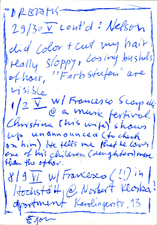 DREAMS
29/30 V cont'd: Nelson
did color + cut my hair
really sloppy, losing bushels
of hair, "Farbstufen" are
visible
1/2 V w/ Francesco
@ a music festival.
Christine (his wife) shows
up unannounced (to check
on him) He tells me that he loves
one of his children (daughters) more
than the other.
8/9 VI w/ Francesco (!!) in
Höchstädt @ Norbert
apartment 13